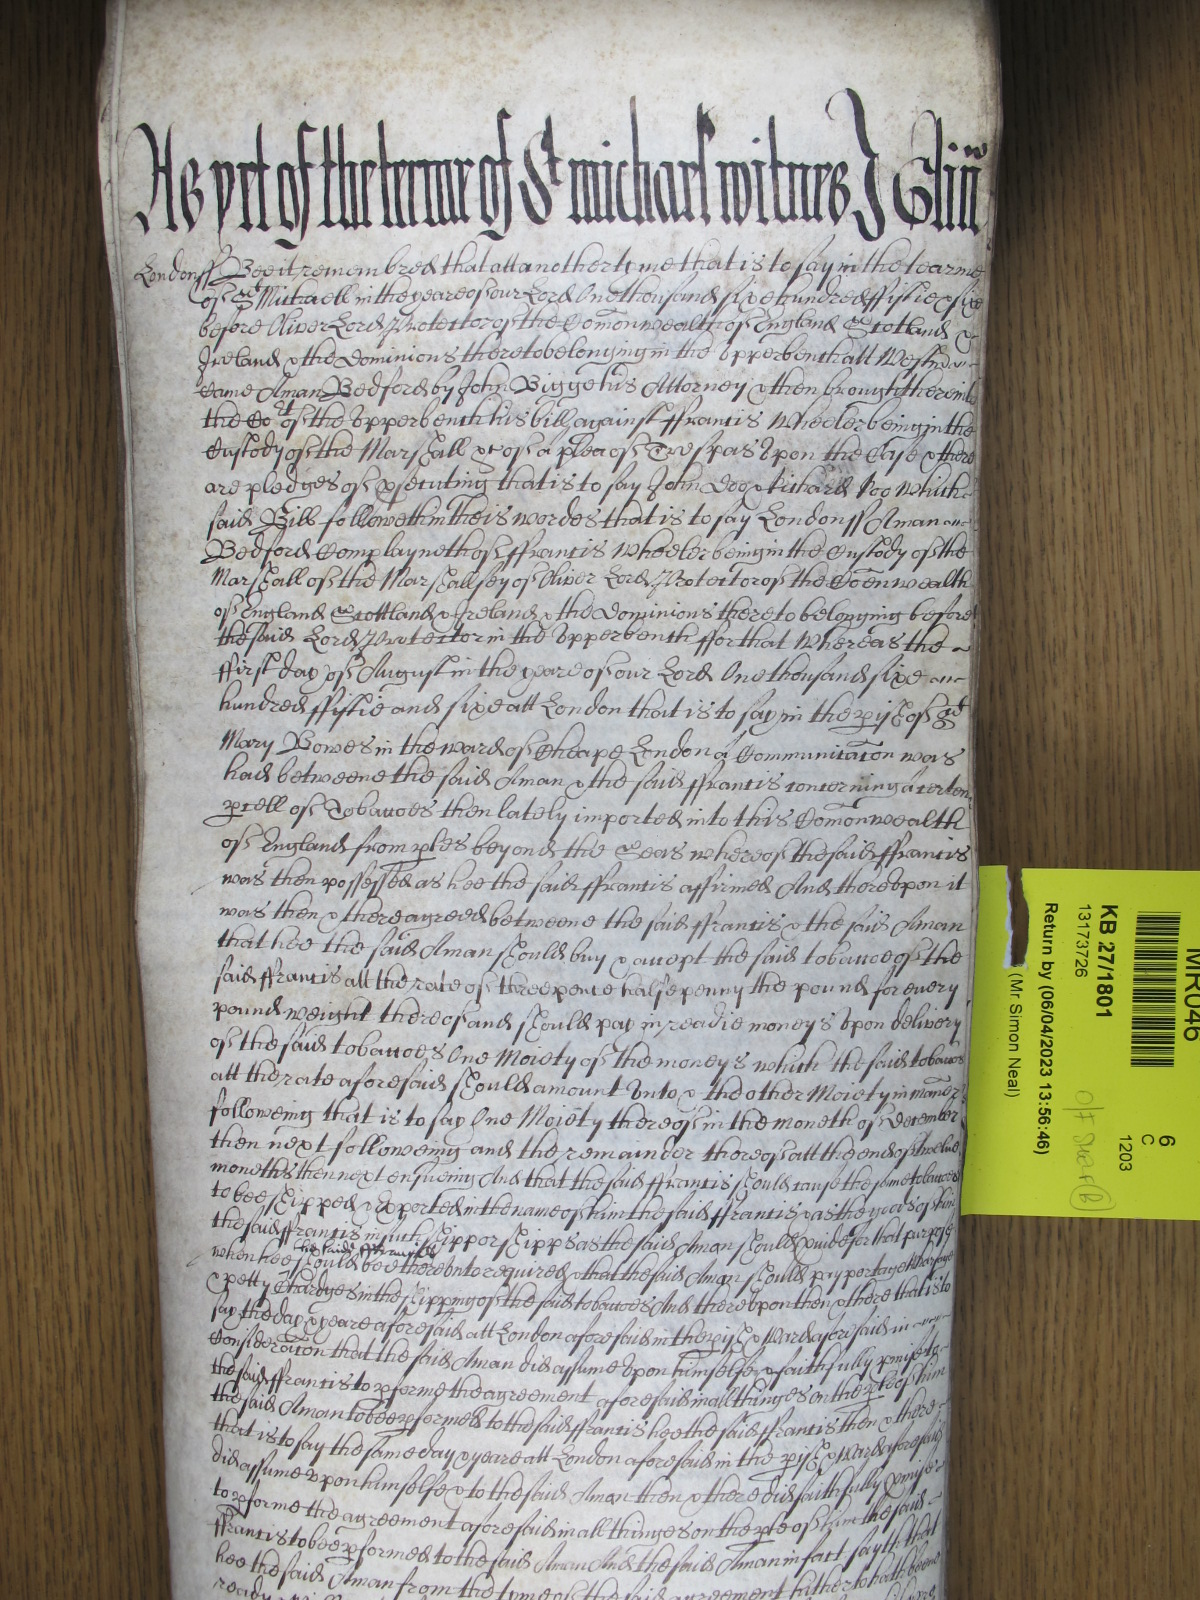 As yet of the terme of St michael witnes J Glin
Londonss Bee it remembred that att another tyme that is to say in the tearme
of St Michaell in the yeare of our Lord One thousand sixe hundred ffiftie & sixe
before Oliver Lord Protector of the Comonwealth of England Scotland &
Ireland & the Dominions thereto belonging in the Upperbench att Westm
came Aman Bedford by John Bigge his Attorney & then brought here into
the Cot of the Upperbench his bill against ffrancis Wheeler being in the
Custody of the Marshall &c of a plea of Trespas Upon the Case & there
are pledges of prsecuting that is to say John Doo & Richard Roo which
said Bill followeth in theis wordes that is to say London ss Aman
Bedford Complayneth of ffrancis Wheeler being in the Custody of the
Marshall of the Marshallsey of Oliver Lord Protector of the Comonwealth
of England Scottland & Ireland & the Dominions thereto belonging before
the said Lord Protector in the Upperbench ffor that Whereas the
ffirst day of August in the yeare of our Lord One thousand sixe
hundred ffiftie and sixe att London that is to say in the pish of St
Mary Bowes in the ward of Cheape London a Communicacon was
had betweene the said Aman & the said ffrancis concerning a certen
pcell of Tobaccoes then lately imported into this Comonwealth
of England from ptes beyond the Seas whereof the said ffrancis
was then possessed as hee the said ffrancis affirmed And thereupon it
was then & there agreed betweene the said ffrancis & the said Aman
that hee the said Aman should buy & accept the said tobaccoe of the
said ffrancis att the rate of three pence halfe penny the pound for every
pound weight thereof and should pay in readie moneys Upon delivery
of the said tobaccoes One Moiety of the moneys which the said tobaccoes
att the rate aforesaid should amount Unto & the other Moiety in maner
followeing that is to say One Moiety thereof in the moneth of December
then next followeing and the remainder thereof att the end of twelve
moneths then next ensueing And that the said ffrancis should cause the same tobaccoes
to bee shipped & exported in the name of him the said ffrancis & as the goods of him
the said ffrancis in such shipp or shipps as the said Aman should pvide for that purpose
the said ffrancis
when hee should bee thereunto required & that the said Aman should pay portage
& petty Chardges in the shipping of the said tobaccoes And thereupon then & there that is to
say the day & yeare aforesaid att London aforesaid in the pish & Ward aforesaid in
Consideracon that the said Aman did assume Upon himselfe & faithfully pmise to
the said ffrancis to pforme the agreement aforesaid in all thinges on the pte of him
the said Aman to bee pformed to the said ffrancis hee the said ffrancis then & there
that is to say the same day & yeare att London aforesaid in the pish & Ward aforesaid
did assume upon himselfe & to the said Aman then & there did faithfully pmise
to pforme the agreement aforesaid in all thinges on the pte of him the said
ffrancis to bee pformed to the said Aman And the said Aman in fact sayth that
hee the said Aman from the tyme of the said agreement hitherto hath beene
ready
MR046
6
C
1203
KB 27/1801
13173726
Return by (06/04/2023 13:56:46)
(Mr Simon Neal)